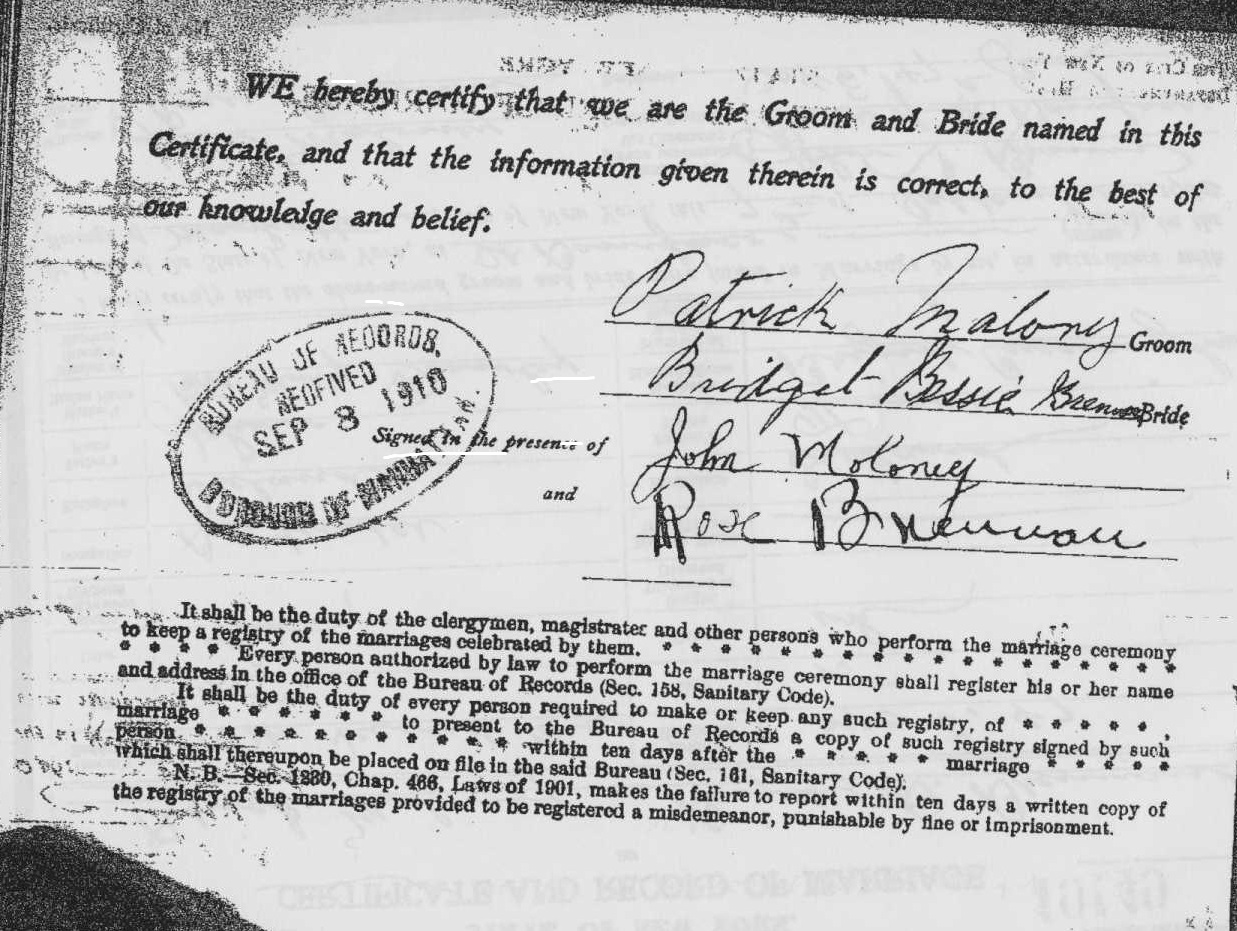 WE hereby certify that we are the Groom and Bride named in this
Certificate, and that the information given therein is correct, to the best of
our knowledge and belief.
Patrick Maloney Groom
Bridget Bessie Brennan Bride
BUREAU OF RECORDS,
RECEIVED
SEP 8 1910
BOROUGH OF MANHATTAN.
Signed in the presence of John Moloney
and Rose Brennan
It shall be the duty of the clergymen, magistrates and other persons who perform the marriage ceremony
to keep a registry of the marriages celebrated by them. * * * * * * * * * * * * * * * * * *
* * * * Every person authorized by law to perform the marriage ceremony shall register his or her name
and address in the office of the Bureau of Records (Sec. 158, Sanitary Code).
It shall be the duty of every person required to make or keep any such registry, of * * * * * ,
marriage * * * * * * * to present to the Bureau of Records a copy of such registry signed by such
person * * * * * * * * * * * within ten days after the * * * * * marriage * * * * *
which shall thereupon be placed on file in the said Bureau (Sec. 161, Sanitary Code).
N. B.—Sec. 1280, Chap. 466, Laws of 1901, makes the failure to report within ten days a written copy of
the registry of the marriages provided to be registered a misdemeanor, punishable by fine or imprisonment.